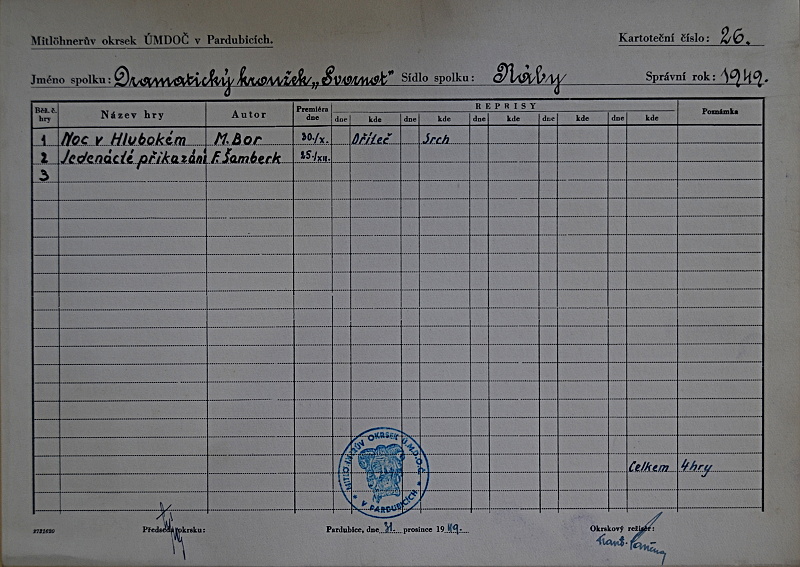 Mitlöhnerův okrsek ÚMDOČ v Pardubicích. Kartoteční číslo: 26.
Jméno spolku: Dramatický kroužek „Svornost" Sídlo spolku: Ráby Správní rok: 1949.
Běž. č. hry Název hry Autor Premiéra dne REPRISY Poznámka
dne kde dne kde dne kde dne kde dne kde
1 Noc v Hlubokém M. Bor 30./X. Dříteč Srch
2 Jedenácté přikázání F. Šamberk 25./XII.
3
MITLÖHNERŮV OKRSEK Ú.M.D.O.Č. V PARDUBICÍCH
Celkem 4 hry
Předseda okrsku: Pardubice, dne 31. prosince 1949. Okrskový režisér: